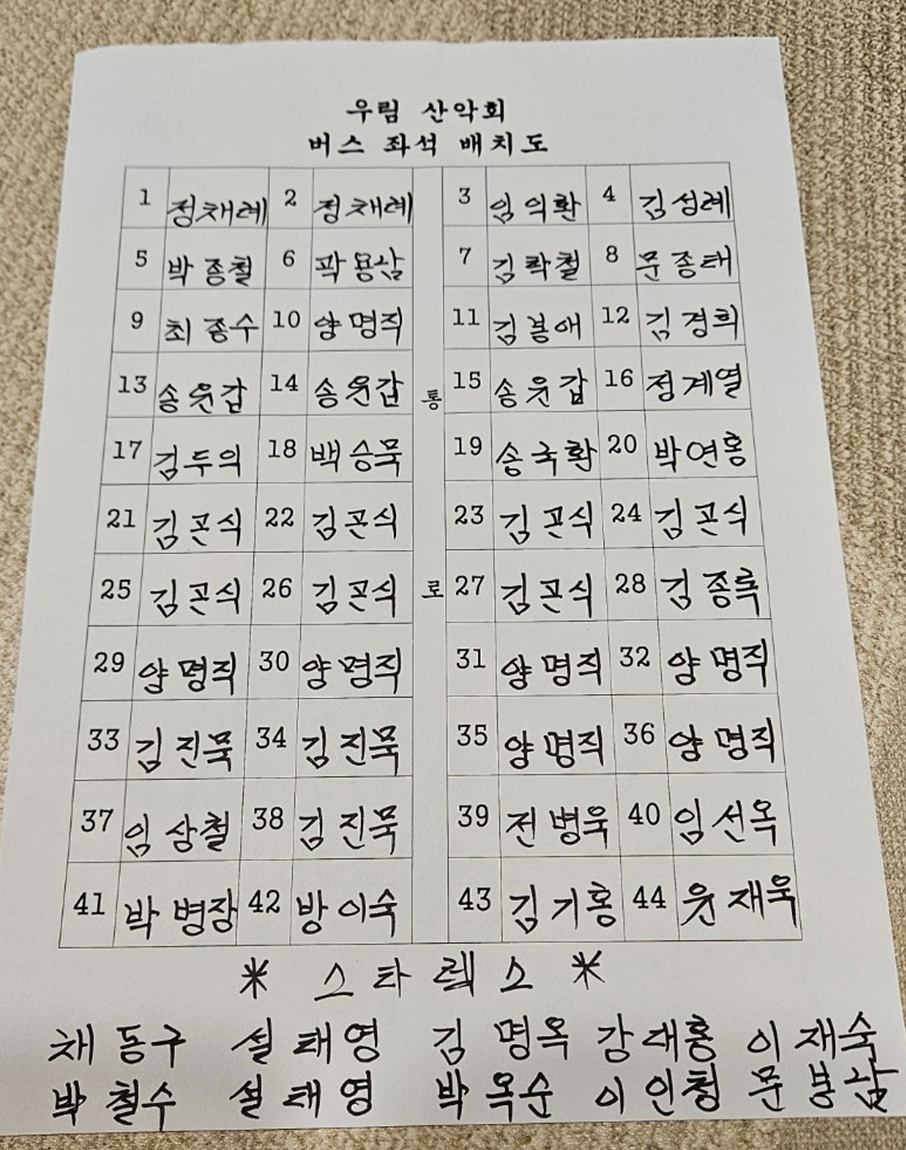 우림 산악회
버스 좌석 배치도
1 정채례 2 정채례 3 임의환 4 김성례
5 박종철 6 곽용삼 7 김락철 8 문종태
9 최종수 10 양명직 11 김봉애 12 김경희
13 송윤갑 14 송윤갑 통 15 송윤갑 16 정계열
17 김두의 18 백승묵 19 송국환 20 박연홍
21 김곤식 22 김곤식 23 김곤식 24 김곤식
25 김곤식 26 김곤식 로 27 김곤식 28 김종록
29 양명직 30 양명직 31 양명직 32 양명직
33 김진묵 34 김진묵 35 양명직 36 양명직
37 임상철 38 김진묵 39 전병욱 40 임선옥
41 박병장 42 방이숙 43 김기홍 44 윤재욱
* 스타렉스 *
채동구 설태영 김명옥 강대홍 이재숙
박철수 설태영 박옥순 이인청 문봉삼